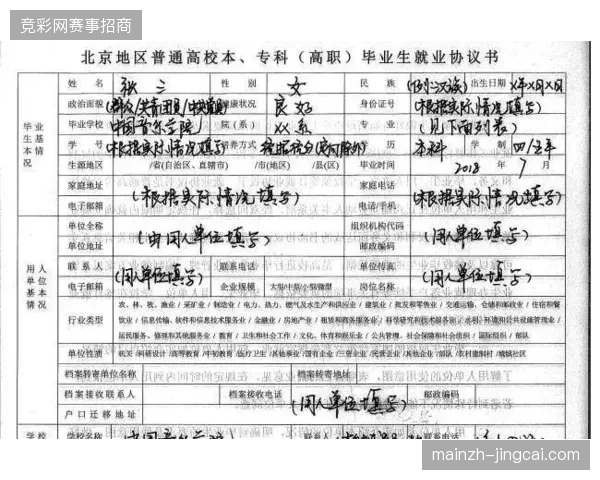 竞彩网赛事招商
北京地区普通高校本、专科（高职）毕业生就业协议书
毕业生基本情况
姓名 张三 性别 女 民族 (例:汉族) 出生日期 X年X月X日
政治面貌 (群众/共青团员/中共党员) 健康状况 良好 身份证号 (根据实际情况填写)
毕业学校 中国音乐学院 院（系） XX系 专业 (见下面列表)
学号 (根据实际情况填写) 培养方式 学历 本科 学制 四/五年
生源地区 省(自治区、直辖市) 市(地区) 县(区) 毕业时间 2018年7月
家庭地址 (根据实际情况填写) 家庭电话 (根据实际情况填写)
电子邮箱 电话/手机
用人单位基本情况
单位全称 (由用人单位填写) 组织机构代码 (用人单位填写)
单位地址 邮政编码
联系人 (用人单位填写) 联系电话 单位传真 (用人单位填写)
电子邮箱 企业规模 大型/中型/小型/微型 岗位名称
行业类型
农、林、牧、渔业 / 采矿业 / 制造业 / 电力、热力、燃气及水生产和供应业 / 建筑业 / 批发和零售业 / 交通运输、仓储和邮政业 / 住宿和餐
饮业 / 信息传输、软件和信息技术服务业 / 金融业 / 房地产业 / 租赁和商务服务业 / 科学研究和技术服务业 / 水利、环境和公共设施管理业 /
居民服务、修理和其他服务业 / 教育 / 卫生和社会工作 / 文化、体育和娱乐业 / 公共管理、社会保障和社会组织 / 国际组织 / 部队
单位性质 机关 /科研设计 /高等教育 /中初教育 /医疗卫生 /其他事业 /国有企业 /三资企业 /其他企业 /部队 /农村建制村 /城镇社区
档案转寄单位名称 档案转寄地址
档案接收联系人 档案接收电话 (用人单位填写) 邮政编码
户口迁移地址
学校名称 中国音乐学院 联系人 联系电话
mainzh-jingcai.com